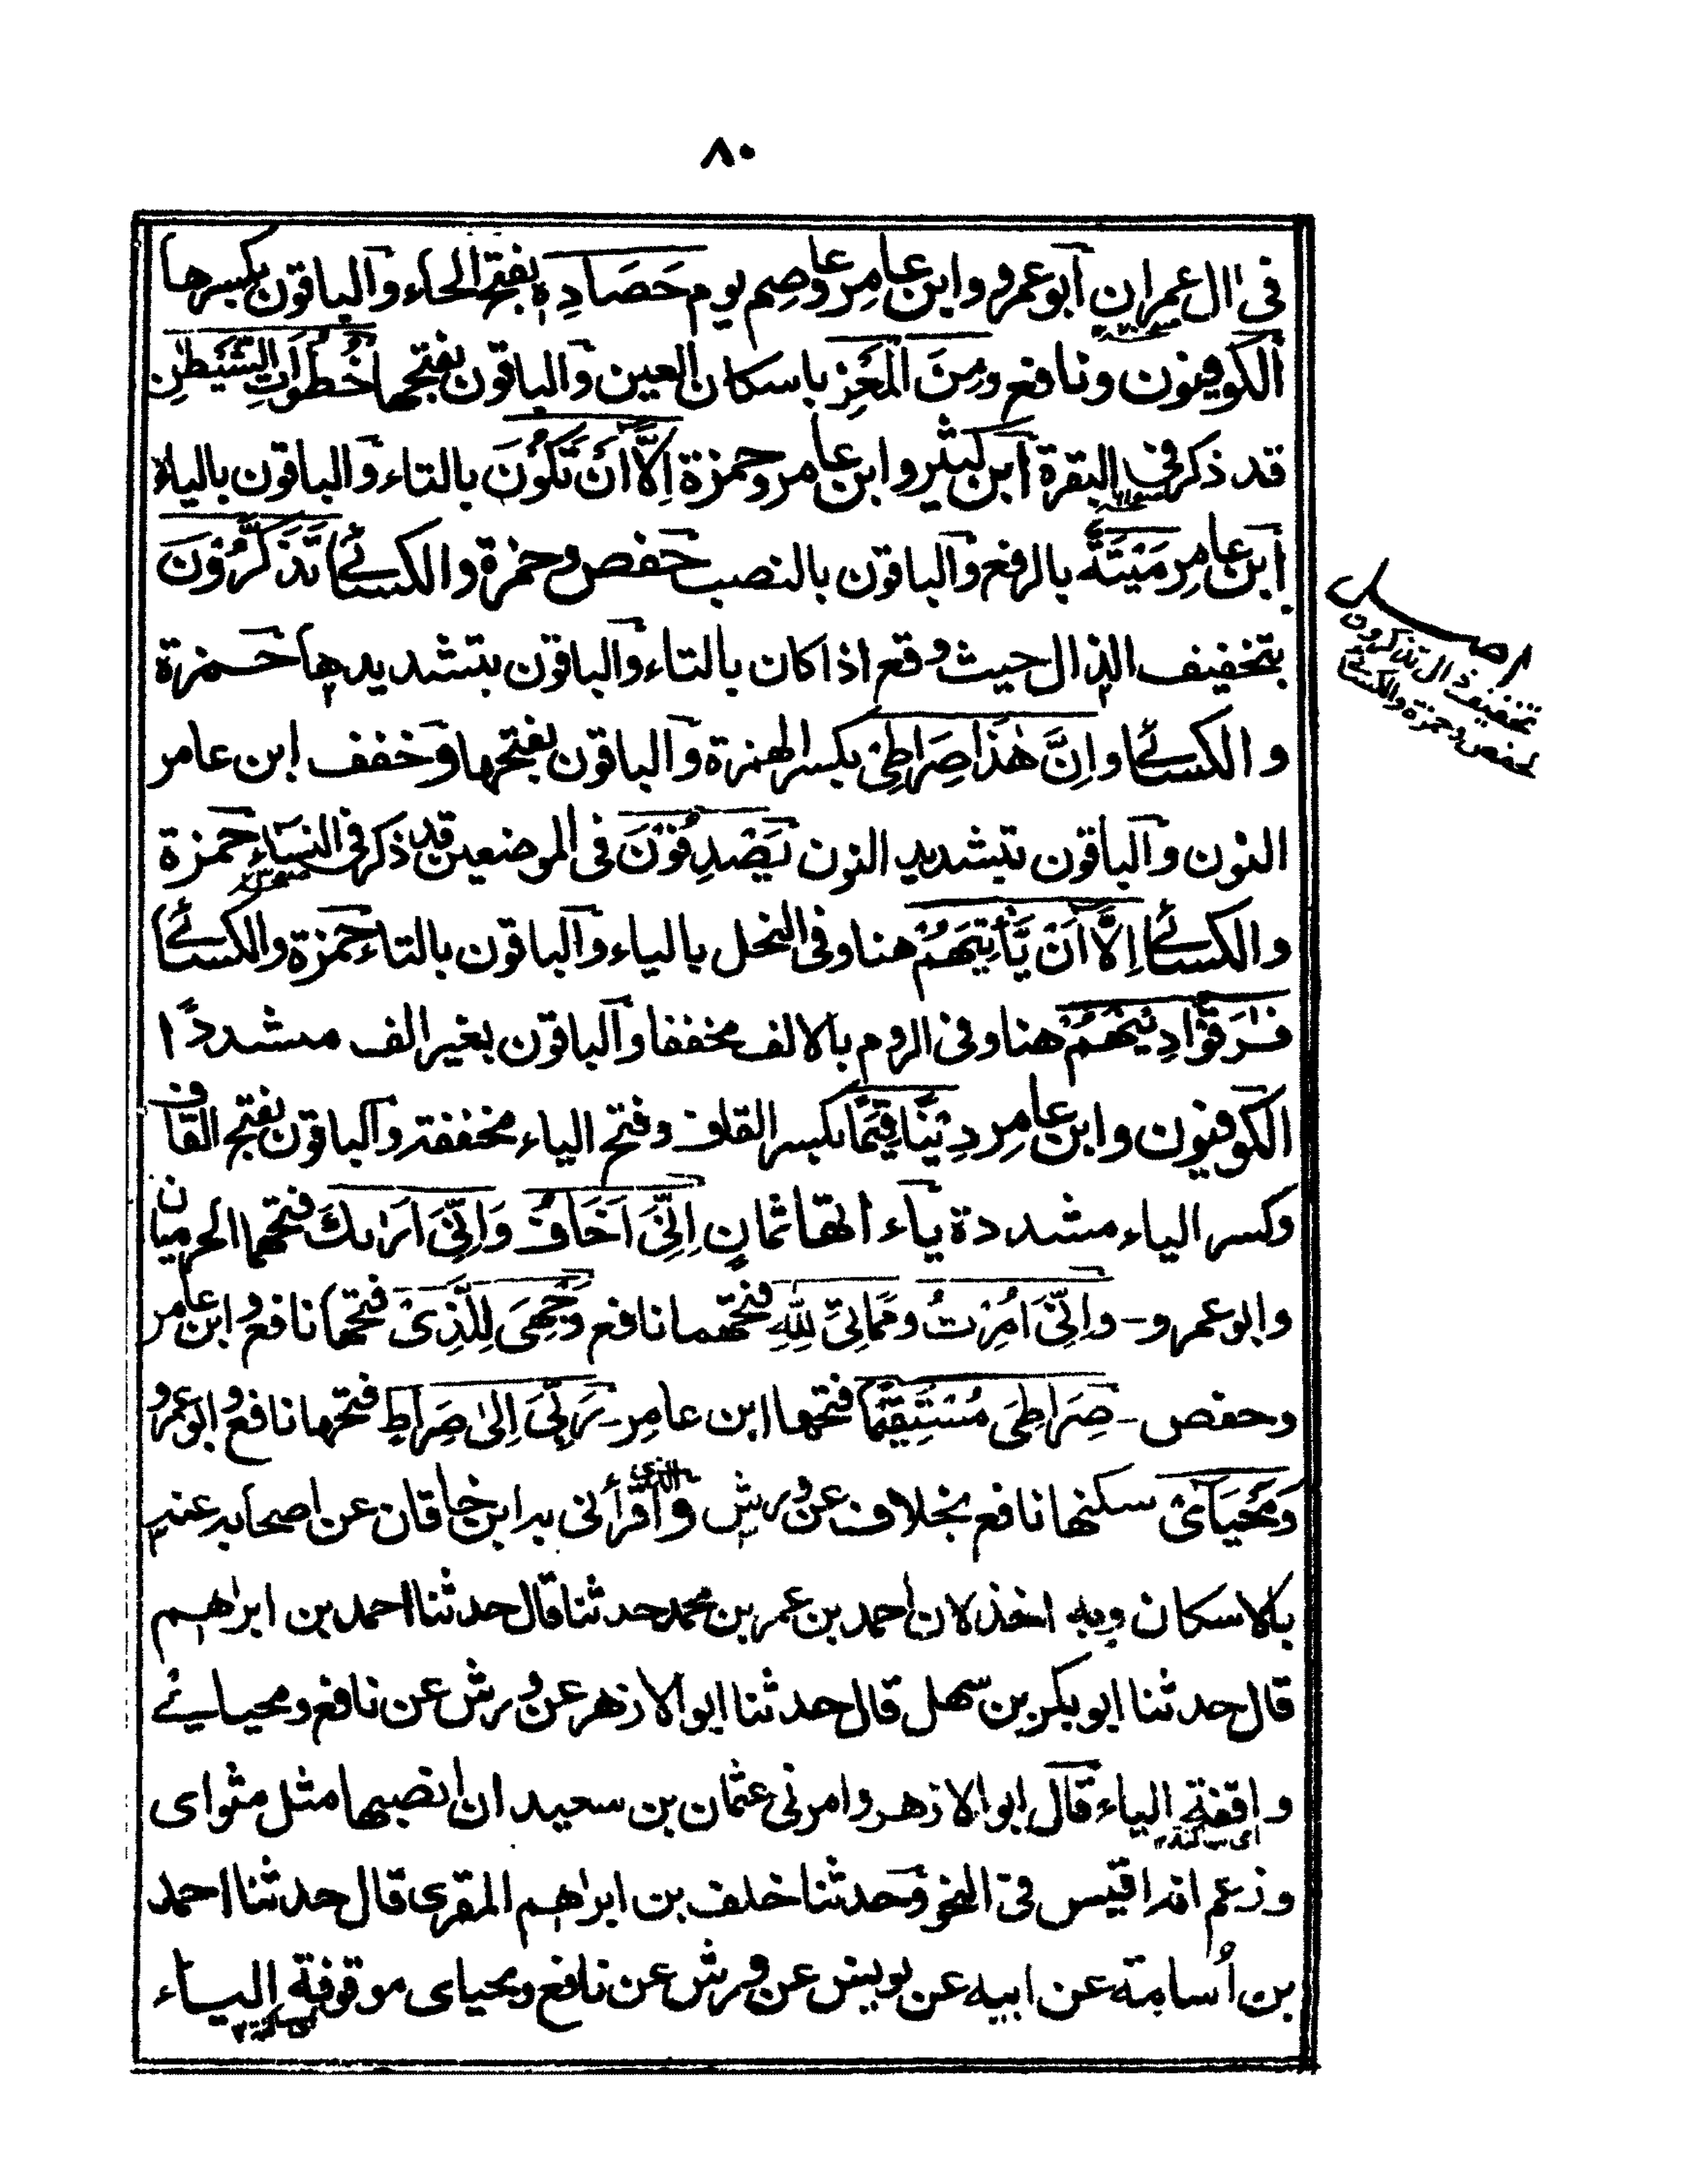 ٨٠
فى اٰل عمران ابو عمرو وابن عامر وعاصم يوم حَصَادِهٖ بفتح الحاء والباقون بكسرها
الكوفيون ونافع ومِنَ الْمَعْزِ باسكان العين والباقون بفتحها خُطُوَاتِ الشَّيْطٰنِ
قد ذكر فى البقرة ابن كثير وابن عامر وحمزة اِلَّا اَنْ تَكُوْنَ بالتاء والباقون بالياء
ابن عامر مَيْتَةٌ بالرفع والباقون بالنصب حفص وحمزة والكسائى تَذَكَّرُوْنَ
بتخفيف الذال حيث وقع اذا كان بالتاء والباقون بتشديدها حمزة
والكسائى واِنَّ هٰذَا صِرَاطِىْ بكسر الهمزة والباقون بفتحها وخفف ابن عامر
النون والباقون بتشديد النون يَصْدِفُوْنَ فى الموضعين قد ذكر فى النساء حمزة
والكسائى اِلَّا اَنْ يَّأْتِيَهُمْ هنا وفى النحل بالياء والباقون بالتاء حمزة والكسائى
فٰرَقُوْا دِيْنَهُمْ هنا وفى الروم بالالف مخففا والباقون بغير الف مشددًا
الكوفيون وابن عامر دِيْنًا قِيَمًا بكسر القاف وفتح الياء مخففة والباقون بفتح القاف
وكسر الياء مشددة ياء اتها ثمانٍ اِنِّىَ اَخَافُ وَاِنِّىَ اَرٰىكَ فتحهما الحرميان
وابو عمرو - واِنِّىَ اُمِرْتُ ومَمَاتِىَ لِلّٰهِ فتحهما نافع وَجْهِىَ لِلَّذِىْ فتحها نافع وابن عامر
وحفص - صِرَاطِىَ مُسْتَقِيْمًا فتحها ابن عامر - رَبِّىَ اِلىٰ صِرَاطٍ فتحها نافع وابو عمرو
وَمَحْيَاىْ سكنها نافع بخلاف عن ورش والذى اقرأنى به ابن خاقان عن اصحابه عنه
بالاسكان وبه اٰخذ لان احمد بن عمر بن محمد حدثنا قال حدثنا احمد بن ابرٰهيم
قال حدثنا ابو بكر بن سهل قال حدثنا ابو الازهر عن ورش عن نافع ومحيائى
واقفة الياء قال ابو الازهر وامرنى عثمان بن سعيد ان انصبها مثل مثواى
اى ساكنة
وزعم انه اقيس فى النحو وحدثنا خلف بن ابرٰهيم المقرى قال حدثنا احمد
بن اُسامة عن ابيه عن يونس عن ورش عن نافع ومحياى موقوفة الياء
اى ساكنة
تخفيف ذال تذكرون
لحفص وحمزة والكسائى